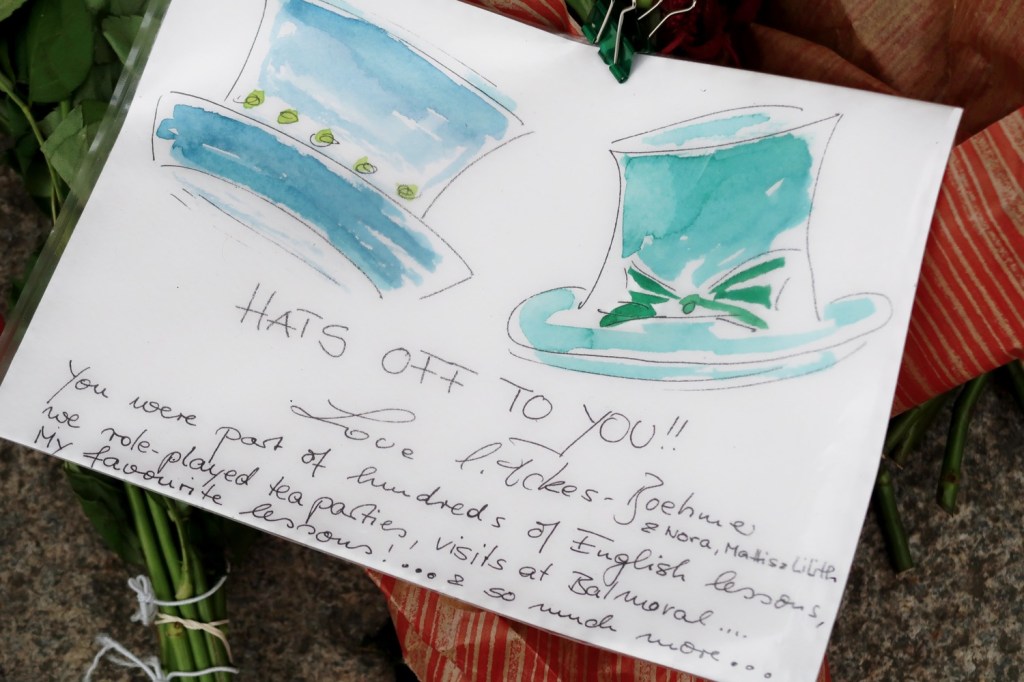 HATS OFF TO YOU!!
Love I. Fckes-Boehme
& Nora, Mattis & Lilith
You were part of hundreds of English lessons,
we role-played teaparties, visits at Balmoral....
My favourite lessons!...& so much more...